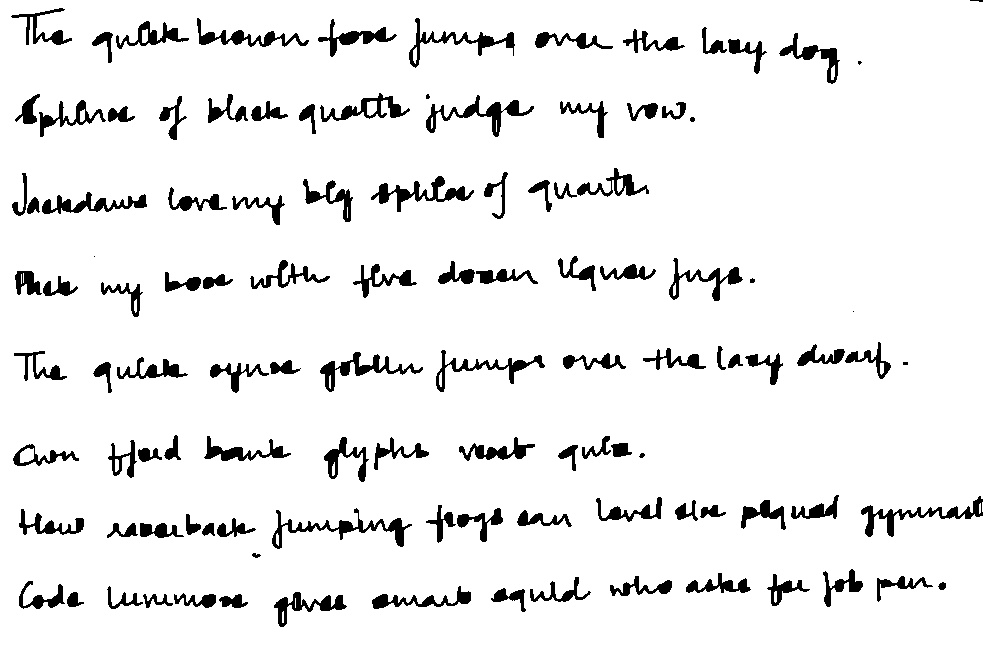 The quick brown fox jumps over the lazy dog.
Sphinx of black quartz judge my vow.
Jackdaws love my big sphinx of quartz.
Pack my box with five dozen liquor jugs.
The quick onyx goblin jumps over the lazy dwarf.
Cwm fjord bank glyphs vext quiz.
How razorback jumping frogs can level six piqued gymnast
Code luminose gives smart squid who asks for job pen.